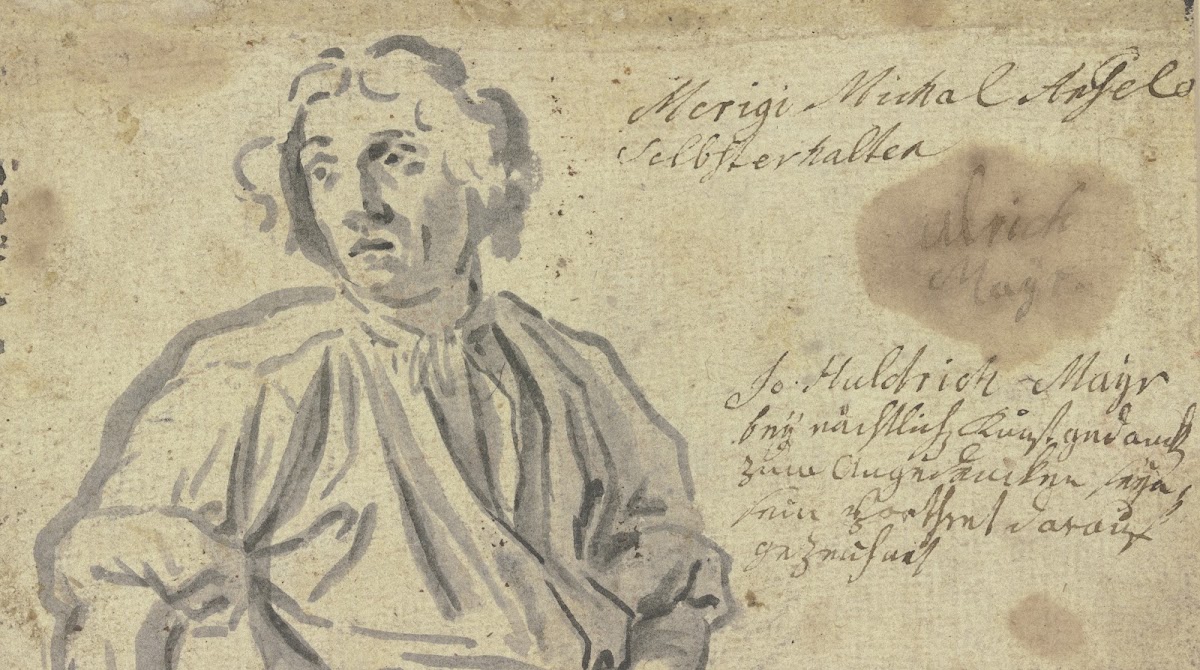 Merigi Michal Angelo
selbsterhalten
Ulrich
Mayr.
Jo. Huldrich Mayr
beÿ nächtlich Kunstgedanck
zum Angedäncken seyn,
sein darauf
gezeichnet